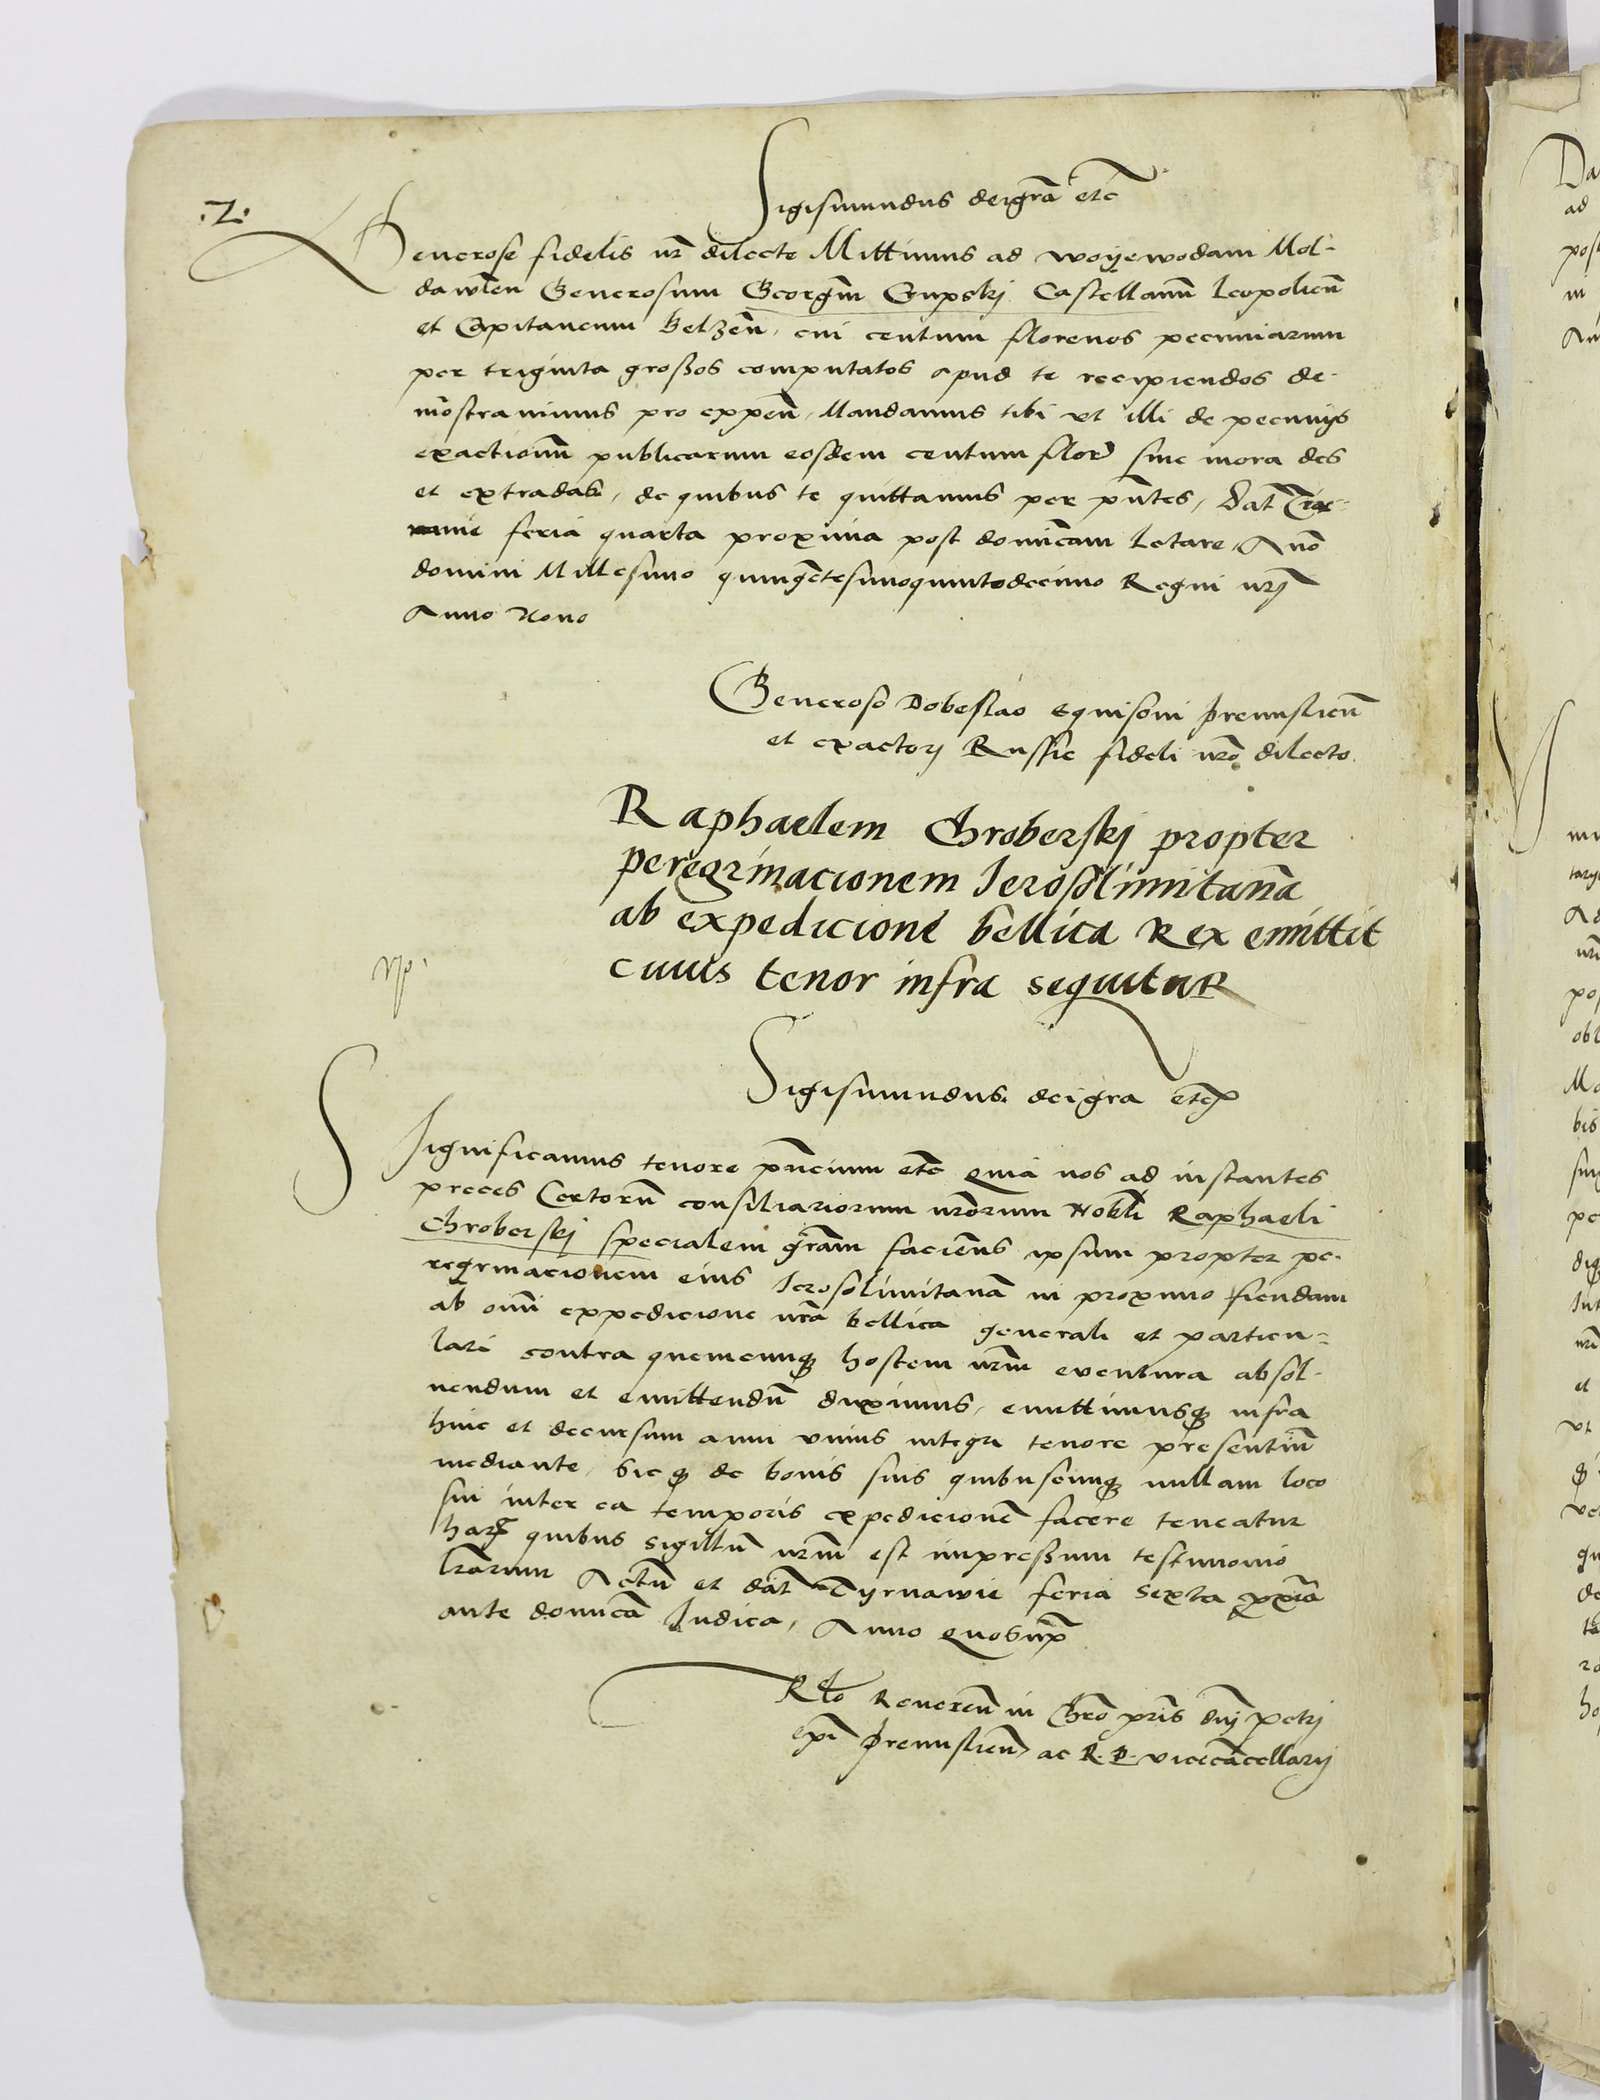 .2.
Sigismundus dei gra etc
Generose fidelis nr dilecte Mittimus ad woyewodam Mol-
dawien Generosum Georgiū Crupski Castellanū Leopolien̄
et Capitaneum Belzen̄, cui centum florenos pecuniarum
per triginta grossos computatos apud te recipiendos de-
mostravimus pro expen̄, Mandamus tibi ut illi de pecunijs
exactionū publicarum eosdem centum flor sine mora des
et extradas, de quibus te quittamus per pn̄tes, Dat̄ Tir-
navie feria quarta proxima post dominicam Letare, Anō
domini Millesimo quingētesimoquintodecimo Regni nrj
Anno Nono
Generoso Dobeslao equisoni premislien̄
et exactorj Russie fideli nrō dilecto
Raphaelem Chroberskj propter
peregrinacionem Ierosolimitanā
ab expedicione bellica Rex emittit
cuius tenor infra sequituR
Sigismundus dei gra etc
Significamus tenore pn̄cium etc Quia nos ad instantes
preces Certorū consiliariorum nrōrum Nobli Raphaeli
Chroberskj specialem grām faciens ipsum propter pe-
regrinacionem eius Ierosolimitanā in proximo fiendam
ab omi expedicione nrā bellica generali et particu-
lari contra quemcunq hostem nrm eventura absol-
vendum et emittendū duximus, emittimusq infra
hinc et decursum anni unius integri tenore presentiū
mediante, Sic q de bonis suis quibuscunq nullam loco
sui inter ea temporis expedicionē facere teneatur
har quibus sigillū nrm est impressum testimonio
lrārum Actū et dat̄ Tyrnawie feria sexta pxīa
ante domicā Iudica, Anno quo supra
Rlō Reveren̄ in Chrō pris dnj petrj
epī premislien̄ ac R. P. vicecācellarij